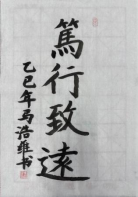 篤行致遠
乙巳年馬浩維书